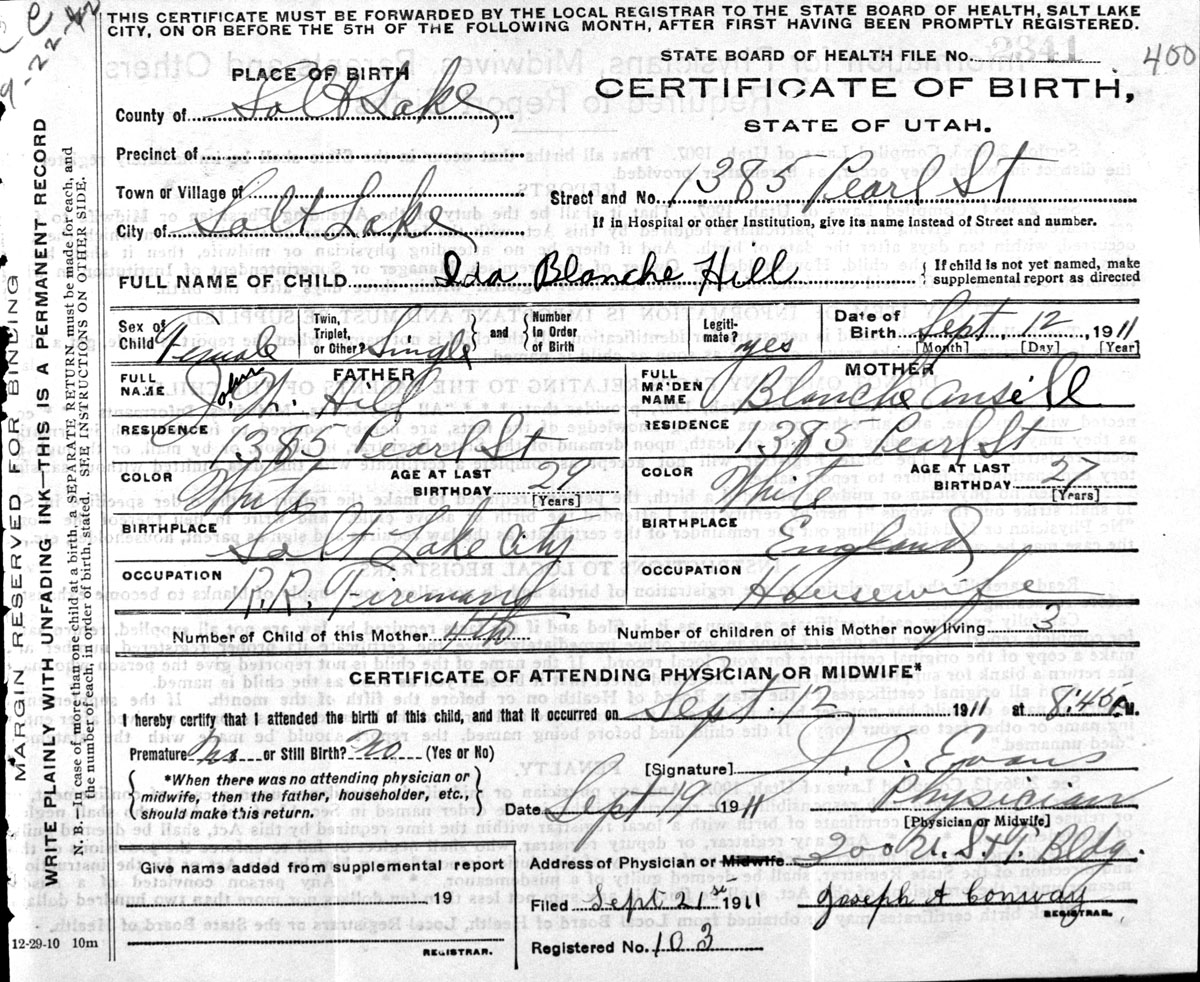 THIS CERTIFICATE MUST BE FORWARDED BY THE LOCAL REGISTRAR TO THE STATE BOARD OF HEALTH, SALT LAKE
CITY, ON OR BEFORE THE 5TH OF THE FOLLOWING MONTH, AFTER FIRST HAVING BEEN PROMPTLY REGISTERED.
STATE BOARD OF HEALTH FILE No. 2841 400
PLACE OF BIRTH
CERTIFICATE OF BIRTH,
County of Salt Lake
STATE OF UTAH.
Precinct of
Town or Village of
Street and No. 1385 Pearl St
City of Salt Lake
If in a Hospital or other Institution, give its name instead of Street and number.
FULL NAME OF CHILD Ida Blanche Hill { If child is not yet named, make
supplemental report as directed
Sex of Child Female
Twin, Triplet, or Other? Single } and { Number in Order of Birth
Legiti-mate? yes
Date of Birth Sept 12, 1911
[Month] [Day] [Year]
FATHER
FULL NAME Hill
RESIDENCE 1385 Pearl St
COLOR White AGE AT LAST BIRTHDAY 29 [Years]
BIRTHPLACE Salt Lake City
OCCUPATION R.R. Fireman
MOTHER
FULL MAIDEN NAME Blanche Ansell
RESIDENCE 1385 Pearl St
COLOR White AGE AT LAST BIRTHDAY 27 [Years]
BIRTHPLACE England
OCCUPATION Housewife
Number of Child of this Mother 4th Number of children of this Mother now living 3
CERTIFICATE OF ATTENDING PHYSICIAN OR MIDWIFE*
I hereby certify that I attended the birth of this child, and that it occurred on Sept 12 1911 at 8:40 M.
Premature? No or Still Birth? no (Yes or No)
[Signature] J. O. Evans
{ *When there was no attending physician or
midwife, then the father, householder, etc.,
should make this return. }
Date Sept 19 1911 Physician
[Physician or Midwife]
Give name added from supplemental report
19
REGISTRAR.
Address of Physician or Midwife. Bldg.
Filed Sept. 21st 1911 Joseph A Conway
REGISTRAR.
Registered No. 103
12-29-10 10m
MARGIN RESERVED FOR BINDING
WRITE PLAINLY WITH UNFADING INK—THIS IS A PERMANENT RECORD
N. B.—In case of more than one child at a birth, a SEPARATE RETURN must be made for each, and
the number of each, in order of birth, stated. SEE INSTRUCTIONS ON OTHER SIDE.